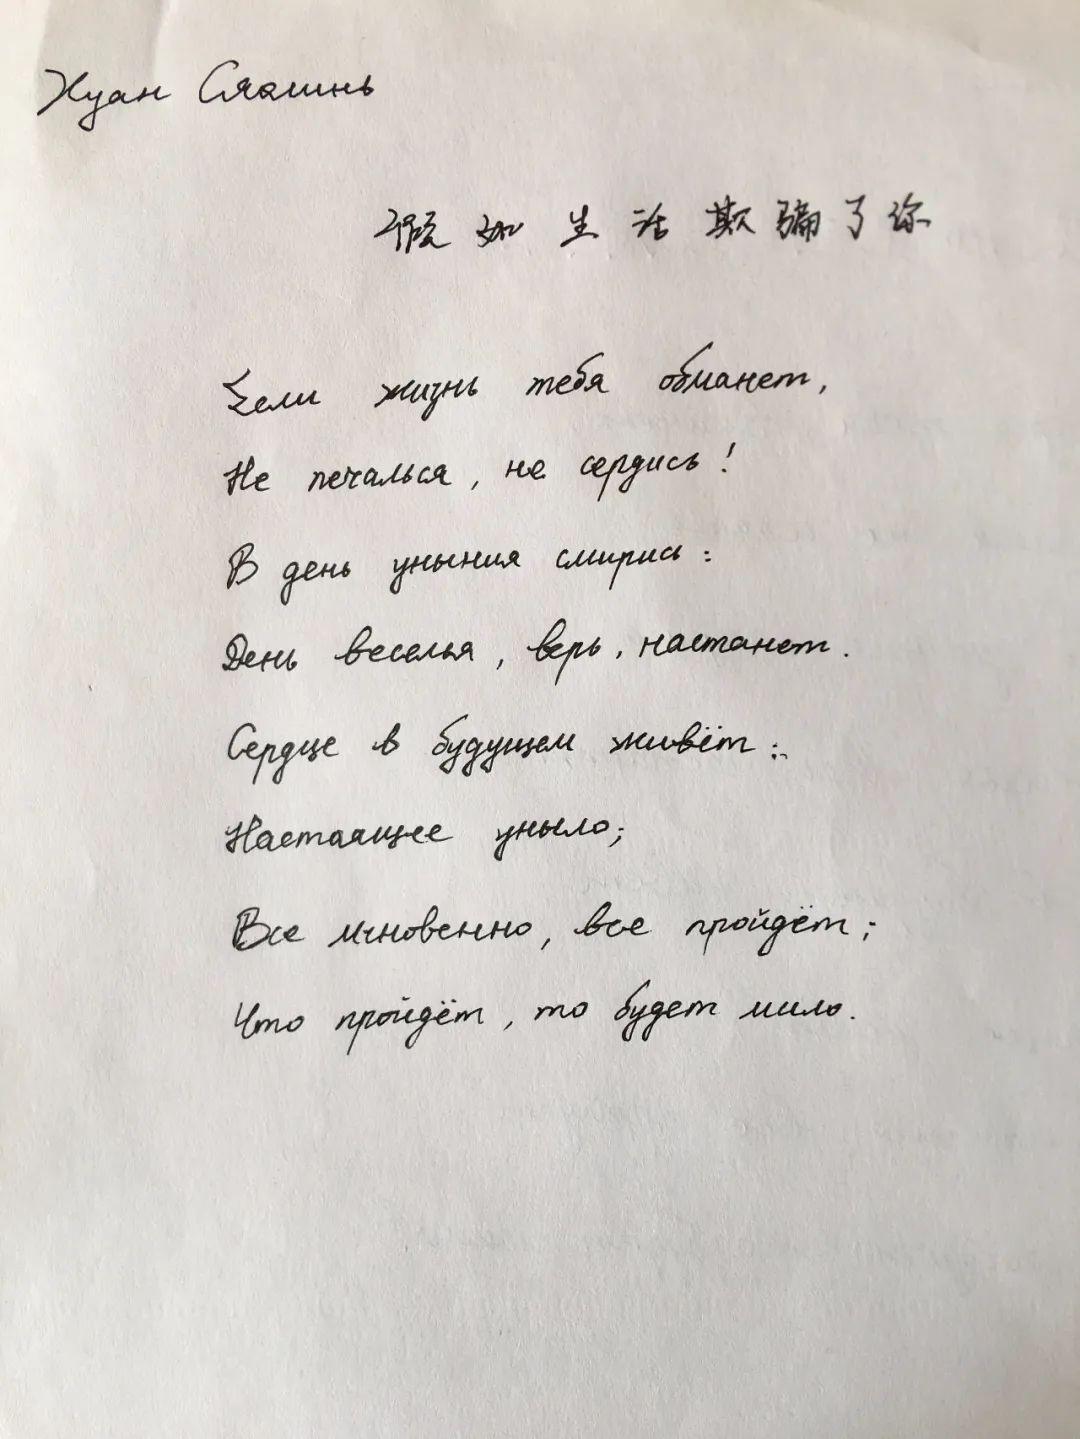 Хуан Сяолинь
假如生活欺骗了你
Если жизнь тебя обманет,
Не печалься, не сердись!
В день уныния смирись:
День веселья, верь, настанет.
Сердце в будущем живёт:
Настоящее уныло;
Все мгновенно, все пройдёт;
Что пройдёт, то будет мило.